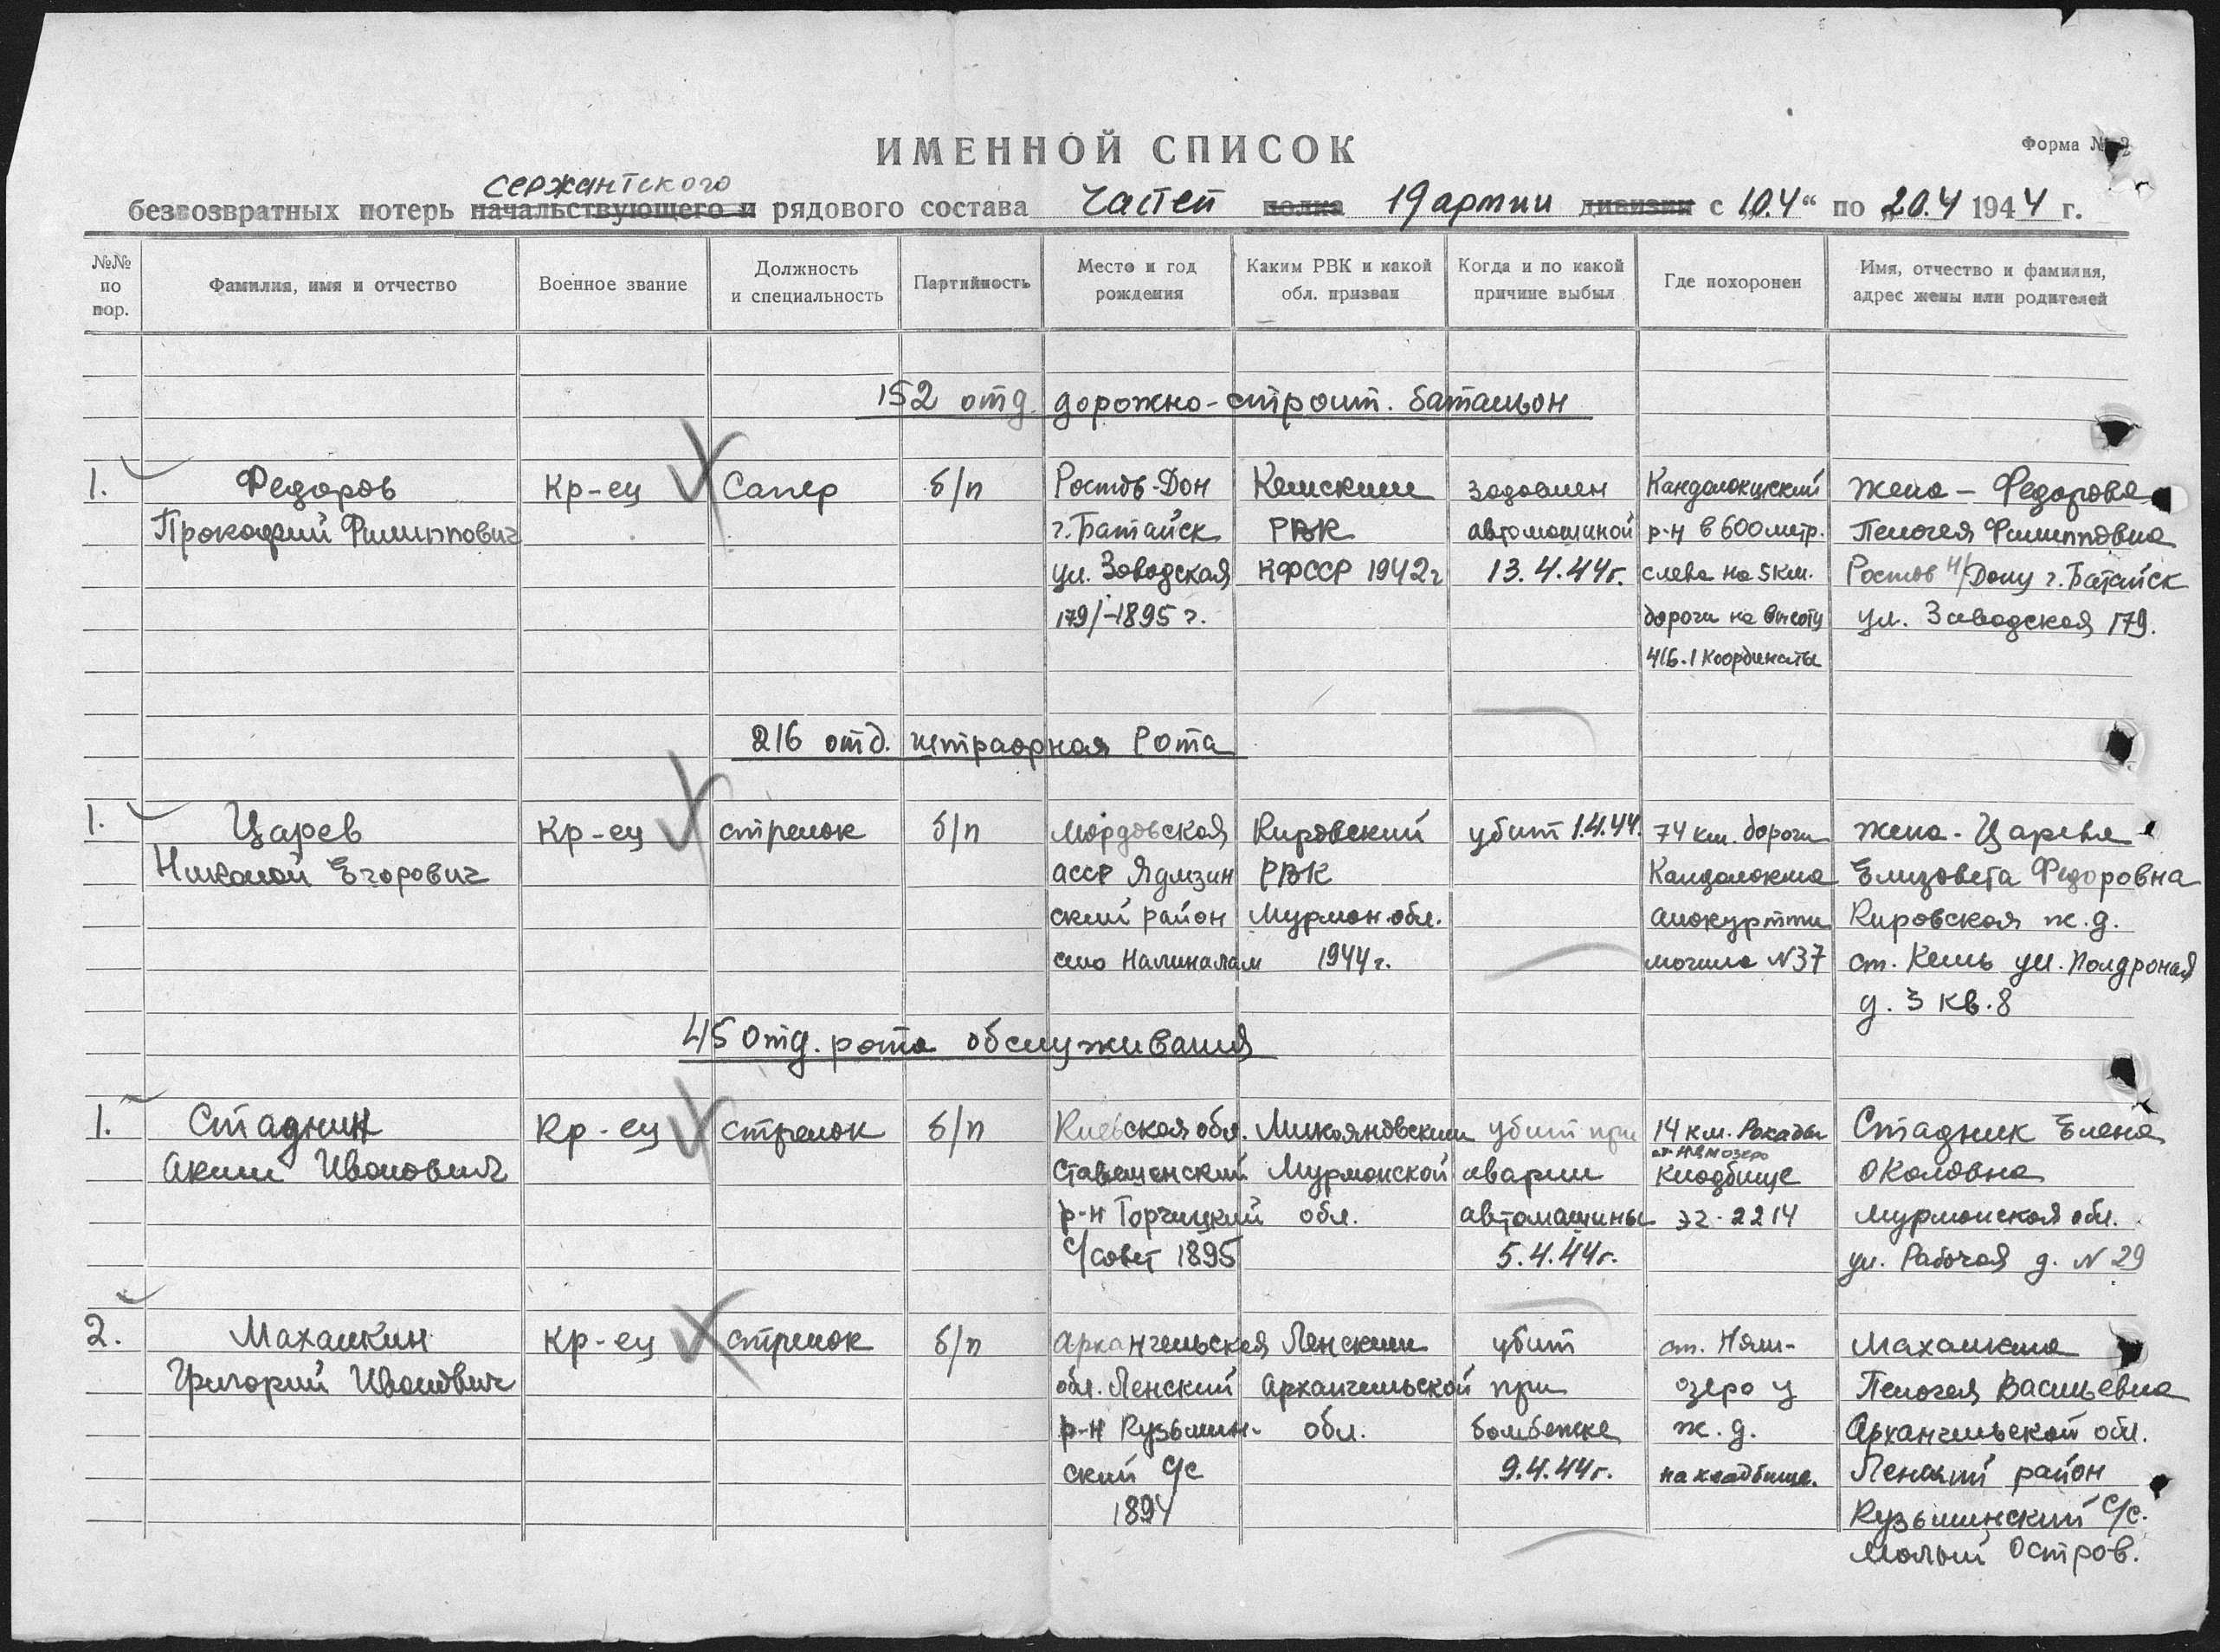 ИМЕННОЙ СПИСОК
Форма №
сержантского
безвозвратных потерь начальствующего и рядового состава частей полка 19 армии дивизии с „10.4“ по „20.4 1944 г.
№№ по пор.
Фамилия, имя и отчество
Военное звание
Должность и специальность
Партийность
Место и год рождения
Каким РВК и какой обл. призван
Когда и по какой причине выбыл
Где похоронен
Имя, отчество и фамилия, адрес жены или родителей
152 отд. дорожно-строит. батальон
1. Федоров Кр-ец Сапер б/п Ростов-Дон Кемским задавлен Кандалакшский жена - Федорова
Прокофий Филиппович г. Батайск РВК автомашиной р-н в 600 метр. Пелогея Филипповна
ул. Заводская КФССР 1942г 13.4.44г. слева на 5км. Ростов н/Дону г. Батайск
179/-1895 г. дороги на высоту ул. Заводская 179.
416.1 Координаты
216 отд. штрафная рота
1. Царев Кр-ец стрелок б/п Мордовская Кировский убит 1.4.44. 74 км. дороги жена - Царева
Николай Егорович АССР РВК Кандалакша Елизавета Федоровна
ский район Мурман. обл. Алокуртти Кировская ж.д.
1944г. могила N37 ст. Кемь ул.
д. 3 кв. 8
45 отд. рота обслуживания
1. Стадник Кр-ец стрелок б/п Киевская обл. Микояновским убит при 14 км. Рокады Стадник Елена
Аким Иванович Ставищенский Мурманской аварии кладбище
р-н Торчицкий обл. автомашины 2214 Мурманская обл.
с/совет 1895 5.4.44г. ул. Рабочая д. N 29
2. Махалкин Кр-ец стрелок б/п Архангельская Ленским убит ст. Ням- Махалкина
Григорий Иванович обл. Ленский Архангельской при озеро у Пелогея Васильевна
р-н Кузьмин- обл. бомбежке ж.д. Архангельской обл.
ский с/с 9.4.44г. на кладбище. Ленский район
1894 Кузьминский с/с.
Малый Остров.